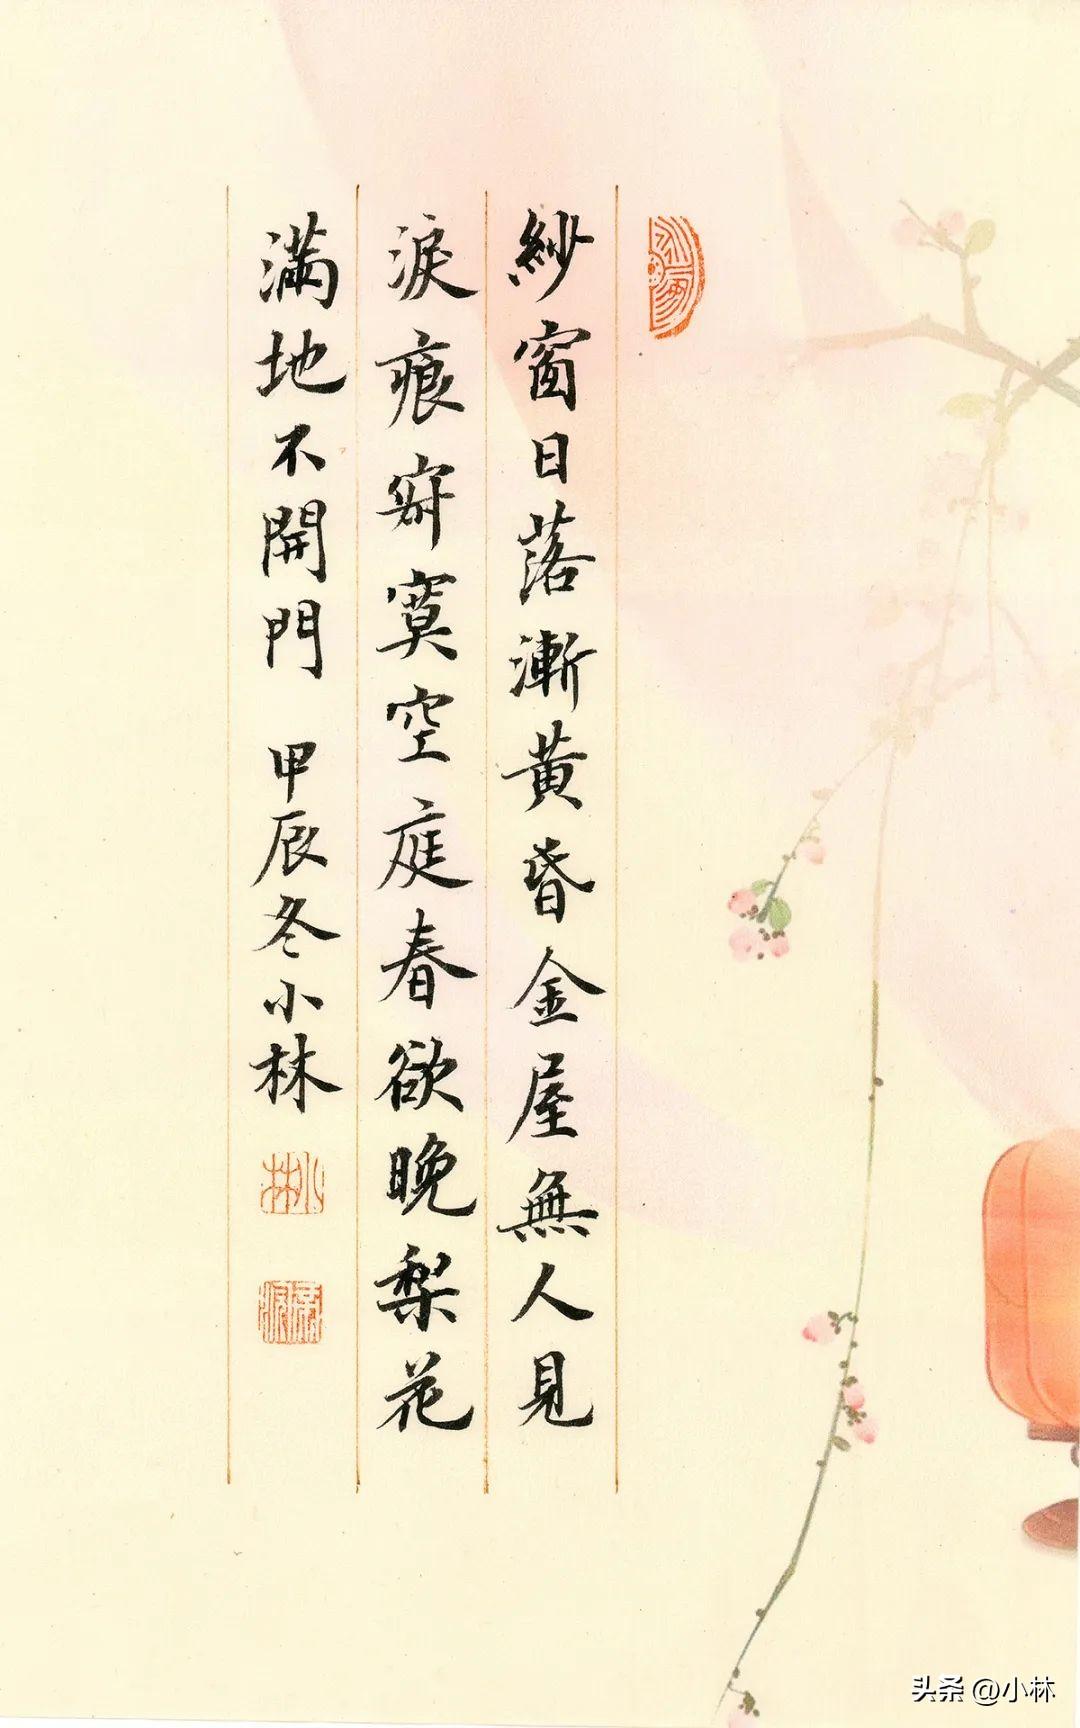 紗窗日落漸黃昏金屋無人見
淚痕寂寞空庭春欲晚梨花
滿地不開門 甲辰冬小林
小林
头条 @小林